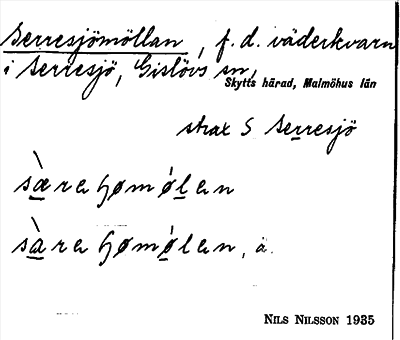 Serresjömöllan, f.d. väderkvarn
i Serresjö, Gislövs sn,
Skytts härad, Malmöhus län
strax S Serresjö
sære hømølen
sàre hømølen, ä.
NILS NILSSON 1935